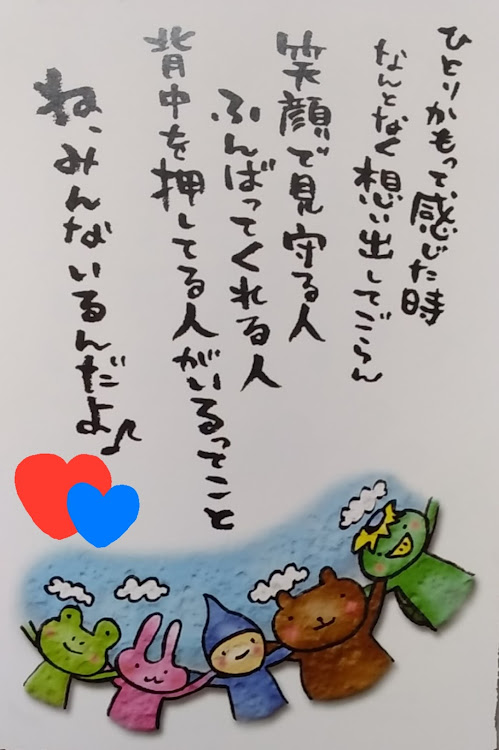 ひとりかもって、感じた時
なんとなく想い出してごらん
笑顔で見守る人
ふんばってくれる人
背中を押してる人がいるってこと
ね、みんないるんだよ♪